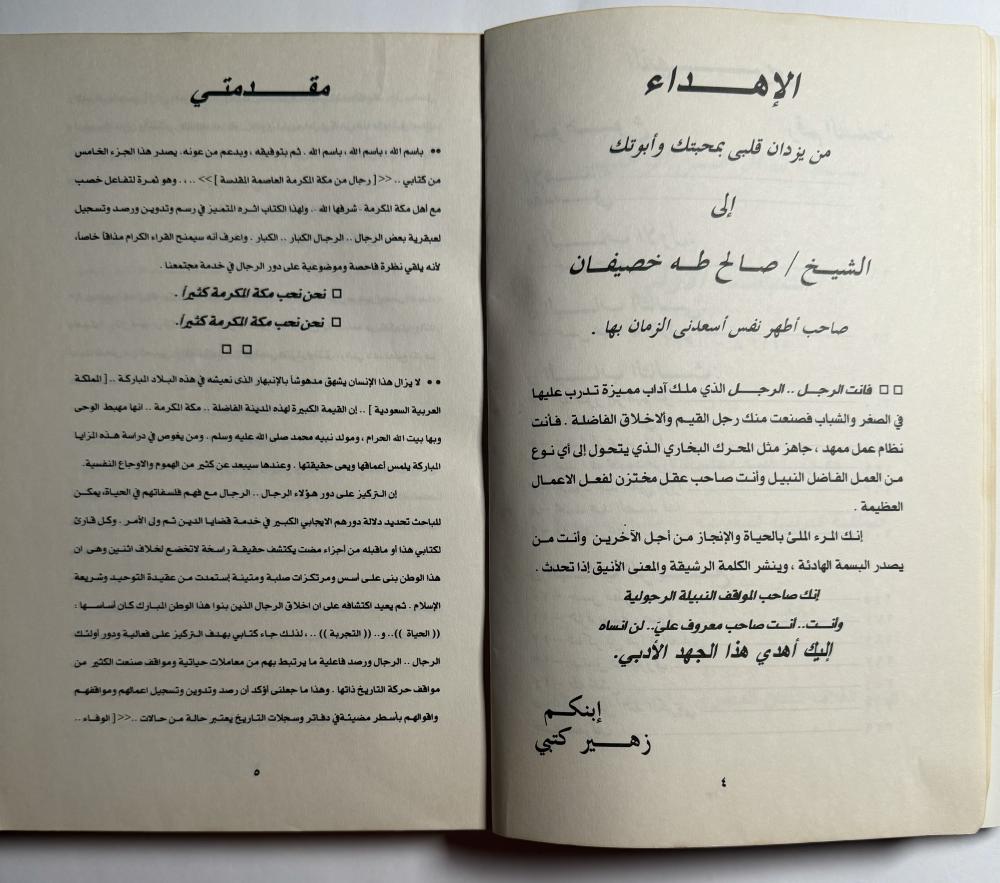 الإهداء
من يزدان قلبى بمحبتك وأبوتك
إلى
الشيخ / صالح طه خصيفان
صاحب أطهر نفس أسعدنى الزمان بها .
□ □ فانت الرجل .. الرجل الذي ملك آداب مميزة تدرب عليها
في الصغر والشباب فصنعت منك رجل القيم والاخلاق الفاضلة . فأنت
نظام عمل ممهد ، جاهز مثل المحرك البخاري الذي يتحول إلى أي نوع
من العمل الفاضل النبيل وأنت صاحب عقل مختزن لفعل الاعمال
العظيمة .
إنك المرء الملئ بالحياة والإنجاز من أجل الآخرين وأنت من
يصدر البسمة الهادئة ، وينشر الكلمة الرشيقة والمعنى الأنيق إذا تحدث .
إنك صاحب المواقف النبيلة الرجولية
وأنت.. أنت صاحب معروف علي.. لن انساه
إليك أهدي هذا الجهد الأدبي.
إبنكم
زهير كتبي
٤
مقدمتي
•• باسم الله ، باسم الله ، باسم الله . ثم بتوفيقه ، وبدعم من عونه . يصدر هذا الجزء الخامس
من كتابي .. <<[ رجال من مكة المكرمة العاصمة المقدسة ]>> .. ، وهو ثمرة لتفاعل خصب
مع أهل مكة المكرمة . شرفها الله . ولهذا الكتاب اثره المتميز في رسم وتدوين ورصد وتسجيل
لعبقرية بعض الرجال .. الرجال الكبار .. الكبار . واعرف أنه سيمنح القراء الكرام مذاقاً خاصاً،
لأنه يلقي نظرة فاحصة وموضوعية على دور الرجال في خدمة مجتمعنا .
□ نحن نحب مكة المكرمة كثيراً .
□ نحن نحب مكة المكرمة كثيراً.
□ □
•• لا يزال هذا الإنسان يشهق مدهوشاً بالإنبهار الذى نعيشه في هذه البلاد المباركة ..[ المملكة
العربية السعودية ] .. إن القيمة الكبيرة لهذه المدينة الفاضلة .. مكة المكرمة .. انها مهبط الوحى
وبها بيت الله الحرام ، ومولد نبيه محمد صلى الله عليه وسلم . ومن يغوص في دراسة هذه المزايا
المباركة يلمس أعماقها ويعى حقيقتها . وعندها سيبعد عن كثير من الهموم والاوجاع النفسية.
إن التركيز على دور هؤلاء الرجال .. الرجال مع فهم فلسفاتهم في الحياة، يمكن
للباحث تحديد دلالة دورهم الايجابي الكبير في خدمة قضايا الدين ثم ولى الأمر . وكل قارئ
لكتابي هذا أو ماقبله من أجزاء مضت يكتشف حقيقة راسخة لاتخضع لخلاف اثنين وهى ان
هذا الوطن بنى على أسس ومرتكزات صلبة ومتينة إستمدت من عقيدة التوحيد وشريعة
الإسلام . ثم يعيد اكتشافه على ان اخلاق الرجال الذين بنوا هذا الوطن المبارك كان أساسها :
(( الحياة )).. و.. (( التجربة )) .. ، لذلك جاء كتابي بهدف التركيز على فعالية ودور أولئك
الرجال .. الرجال ورصد فاعلية ما يرتبط بهم من معاملات حياتية ومواقف صنعت الكثير من
مواقف حركة التاريخ ذاتها . وهذا ما جعلنى أؤكد أن رصد وتدوين وتسجيل اعمالهم ومواقفهم
واقوالهم بأسطر مضيئة في دفاتر وسجلات التاريخ يعتبر حالة من حالات ..<<[ الوفاء ..
٥